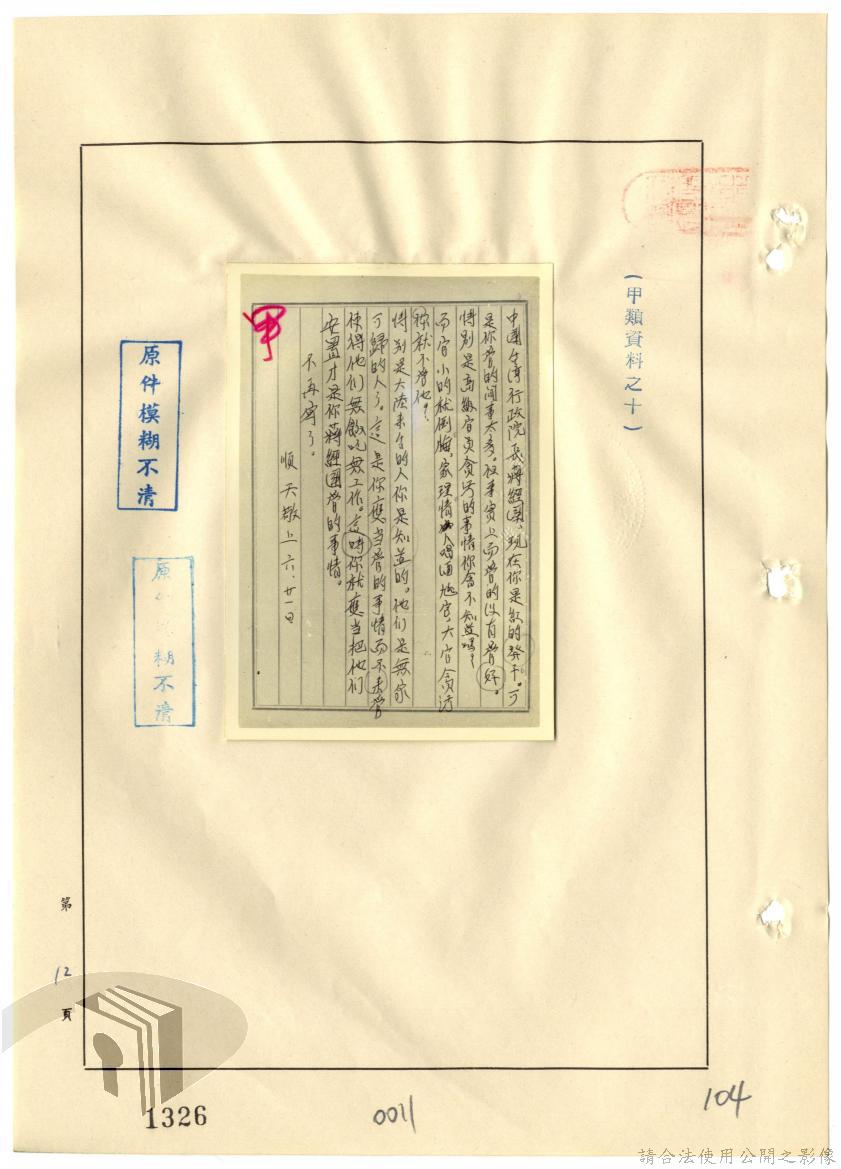 (甲類資料之十)
中國台湾行政院長蔣經國,現在你是
是你管的闲事太多。但事實上而管的没有管好。
特别是高級官員貪污的事情你會不知道嗎?
而官小的就倒霉。大官貪污
你就不管他?
特别是大陸来台的人你是知道的。他们是無家
可歸的人了。這是你應当管的事情而不去管
使得他们無飯吃無工作。這時你就應当把他们
安置才是你蔣經國管的事情。
不再寫了。
順天敬上 六、廿一日
甲
原件模糊不清
原 糊不清
第12頁
1326
0011
104
請合法使用公開之影像